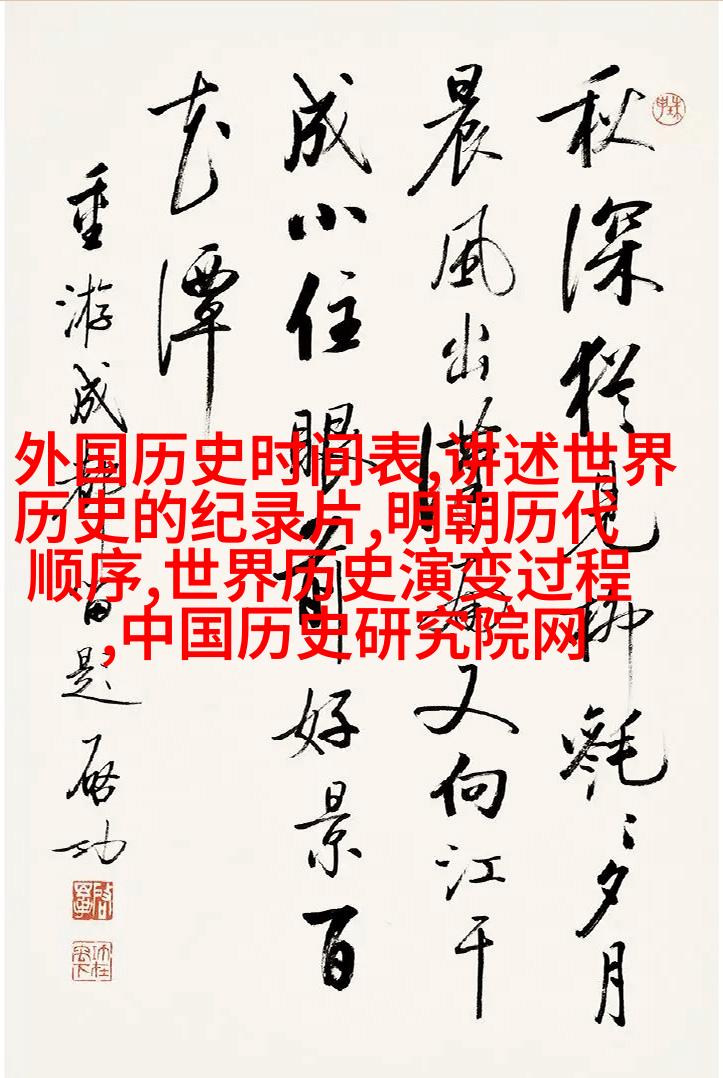 秋深猶見柳毿〻夕月
晨風出漢南又向江干
成小住眼前好景百
花潭
重游成都留題 啟功
外国历史时间表,讲述世界
历史的纪录片,明朝历代
顺序,世界历史演变过程
,中国历史研究院网